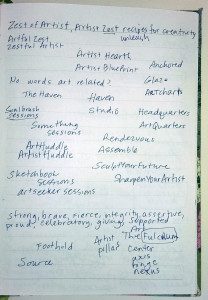 Zest of Artist, Artist Zest recipes for creativity
Artful Zest unleash
Zestful Artist
Artist Hearth
Artist Blueprint Anchored
No words art related? Glaze
The Haven Haven Artcharts
Studio Headquarters
Sessions ArtQuarters
Something
sessions Rendezvous
ArtHuddle Assemble
ArtistHuddle
Sculptyourfuture
Sketchbook SharpenYourArtist
Sessions
artseeker sessions
strong, brave, fierce, integrity, assertive,
proud, celebratory, giving, supported
Art
Artist The Fulcrum
Foothold pillar center
axis
Source hinge
nexus